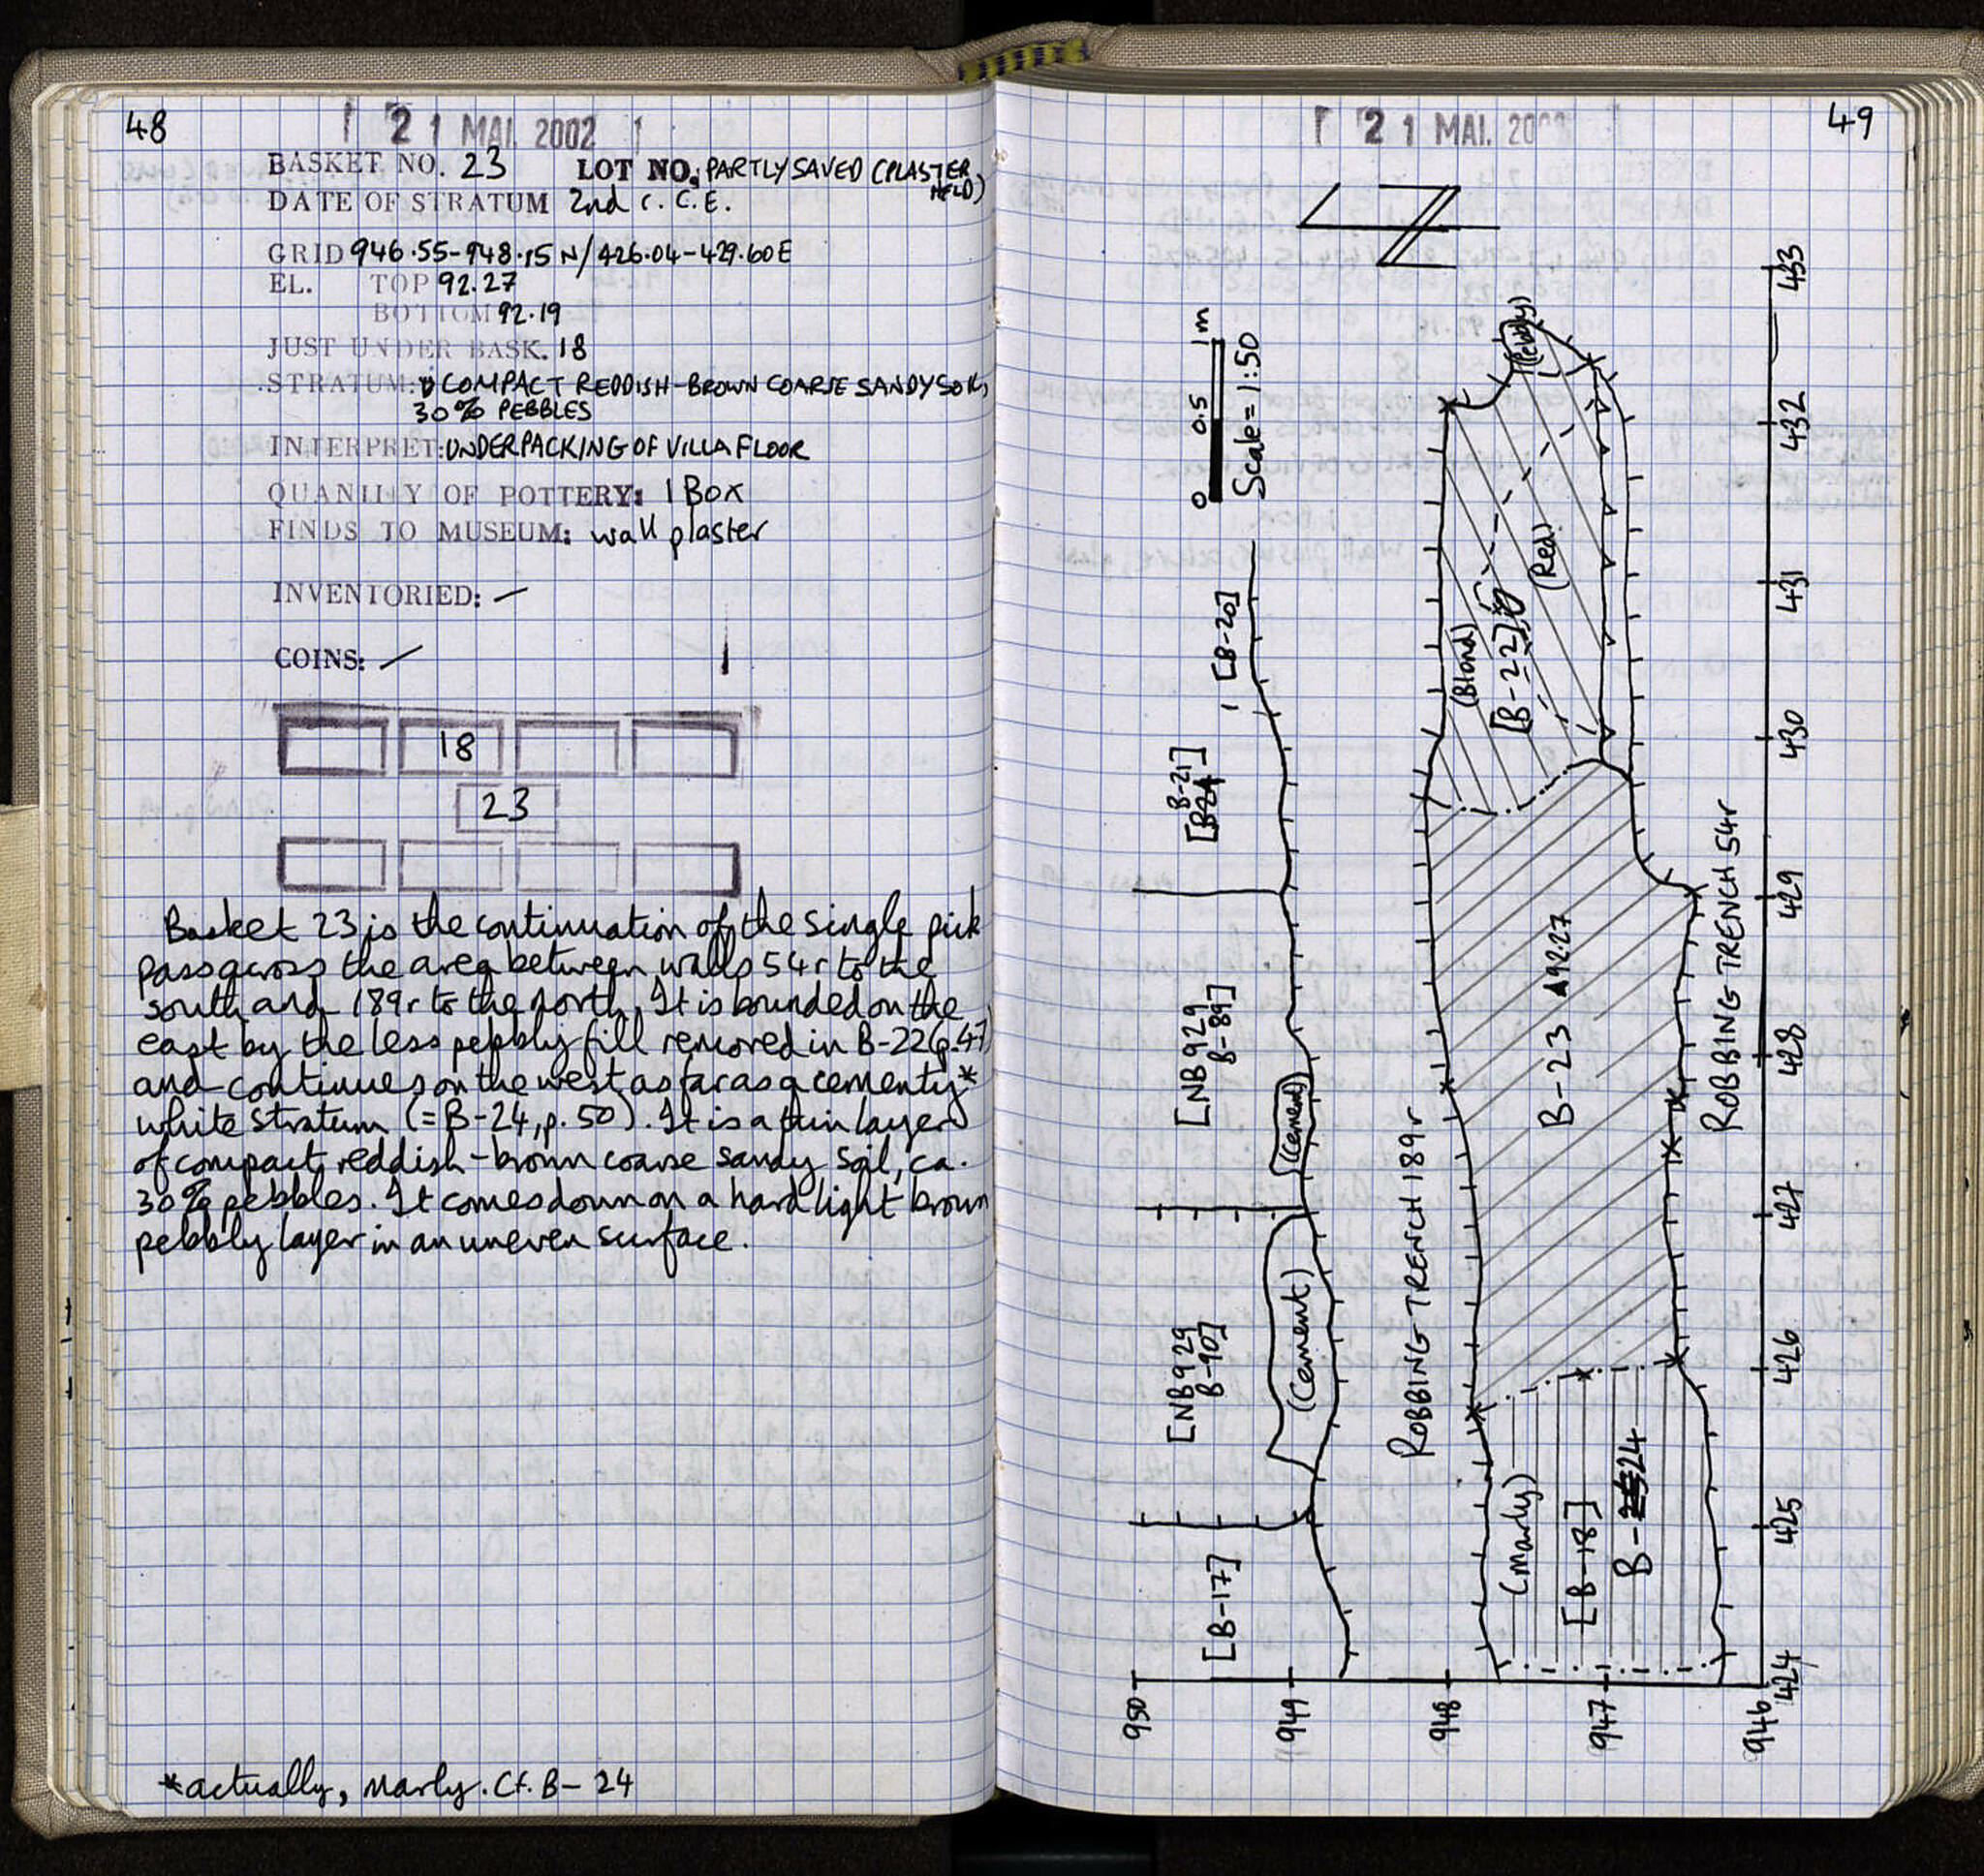 48
21 MAI. 2002
BASKET NO. 23 LOT NO. PARTLY SAVED (PLASTER
HELD)
DATE OF STRATUM 2nd c. C.E.
GRID 946.55-948.15 N/426.04-429.60E
EL. TOP 92.27
BOTTOM 92.19
JUST UNDER BASK. 18
STRATUM: COMPACT REDDISH-BROWN COARSE SANDY SOIL,
30% PEBBLES
INTERPRET: UNDERPACKING OF VILLA FLOOR
QUANTITY OF POTTERY: 1 BOX
FINDS TO MUSEUM: wall plaster
INVENTORIED: —
COINS: —
18
23
Basket 23 is the continuation of the single pick
pass across the area between walls 54r to the
south and 189r to the north. It is bounded on the
east by the less pebbly fill removed in B-22 (p.47)
and continues on the west as far as a cementy*
white stratum (=B-24, p. 50). It is a thin layer
of compact reddish-brown coarse sandy soil, ca.
30% pebbles. It comes down on a hard light brown
pebbly layer in an uneven surface.
*actually, marly. Cf. B-24
49
21 MAI. 200
N
0 0.5 1m
Scale = 1:50
[B-17]
[NB929
B-90]
[NB929
B-89]
[B-21]
[B-20]
(Cement)
(Cement)
ROBBING TRENCH 189r
(Marly)
[B-18]
B-24
B-23
92.27
(Blond)
[B-22]
(Red)
(Pebbly)
ROBBING TRENCH 54r
950
949
948
947
946
424
425
426
427
428
429
430
431
432
433